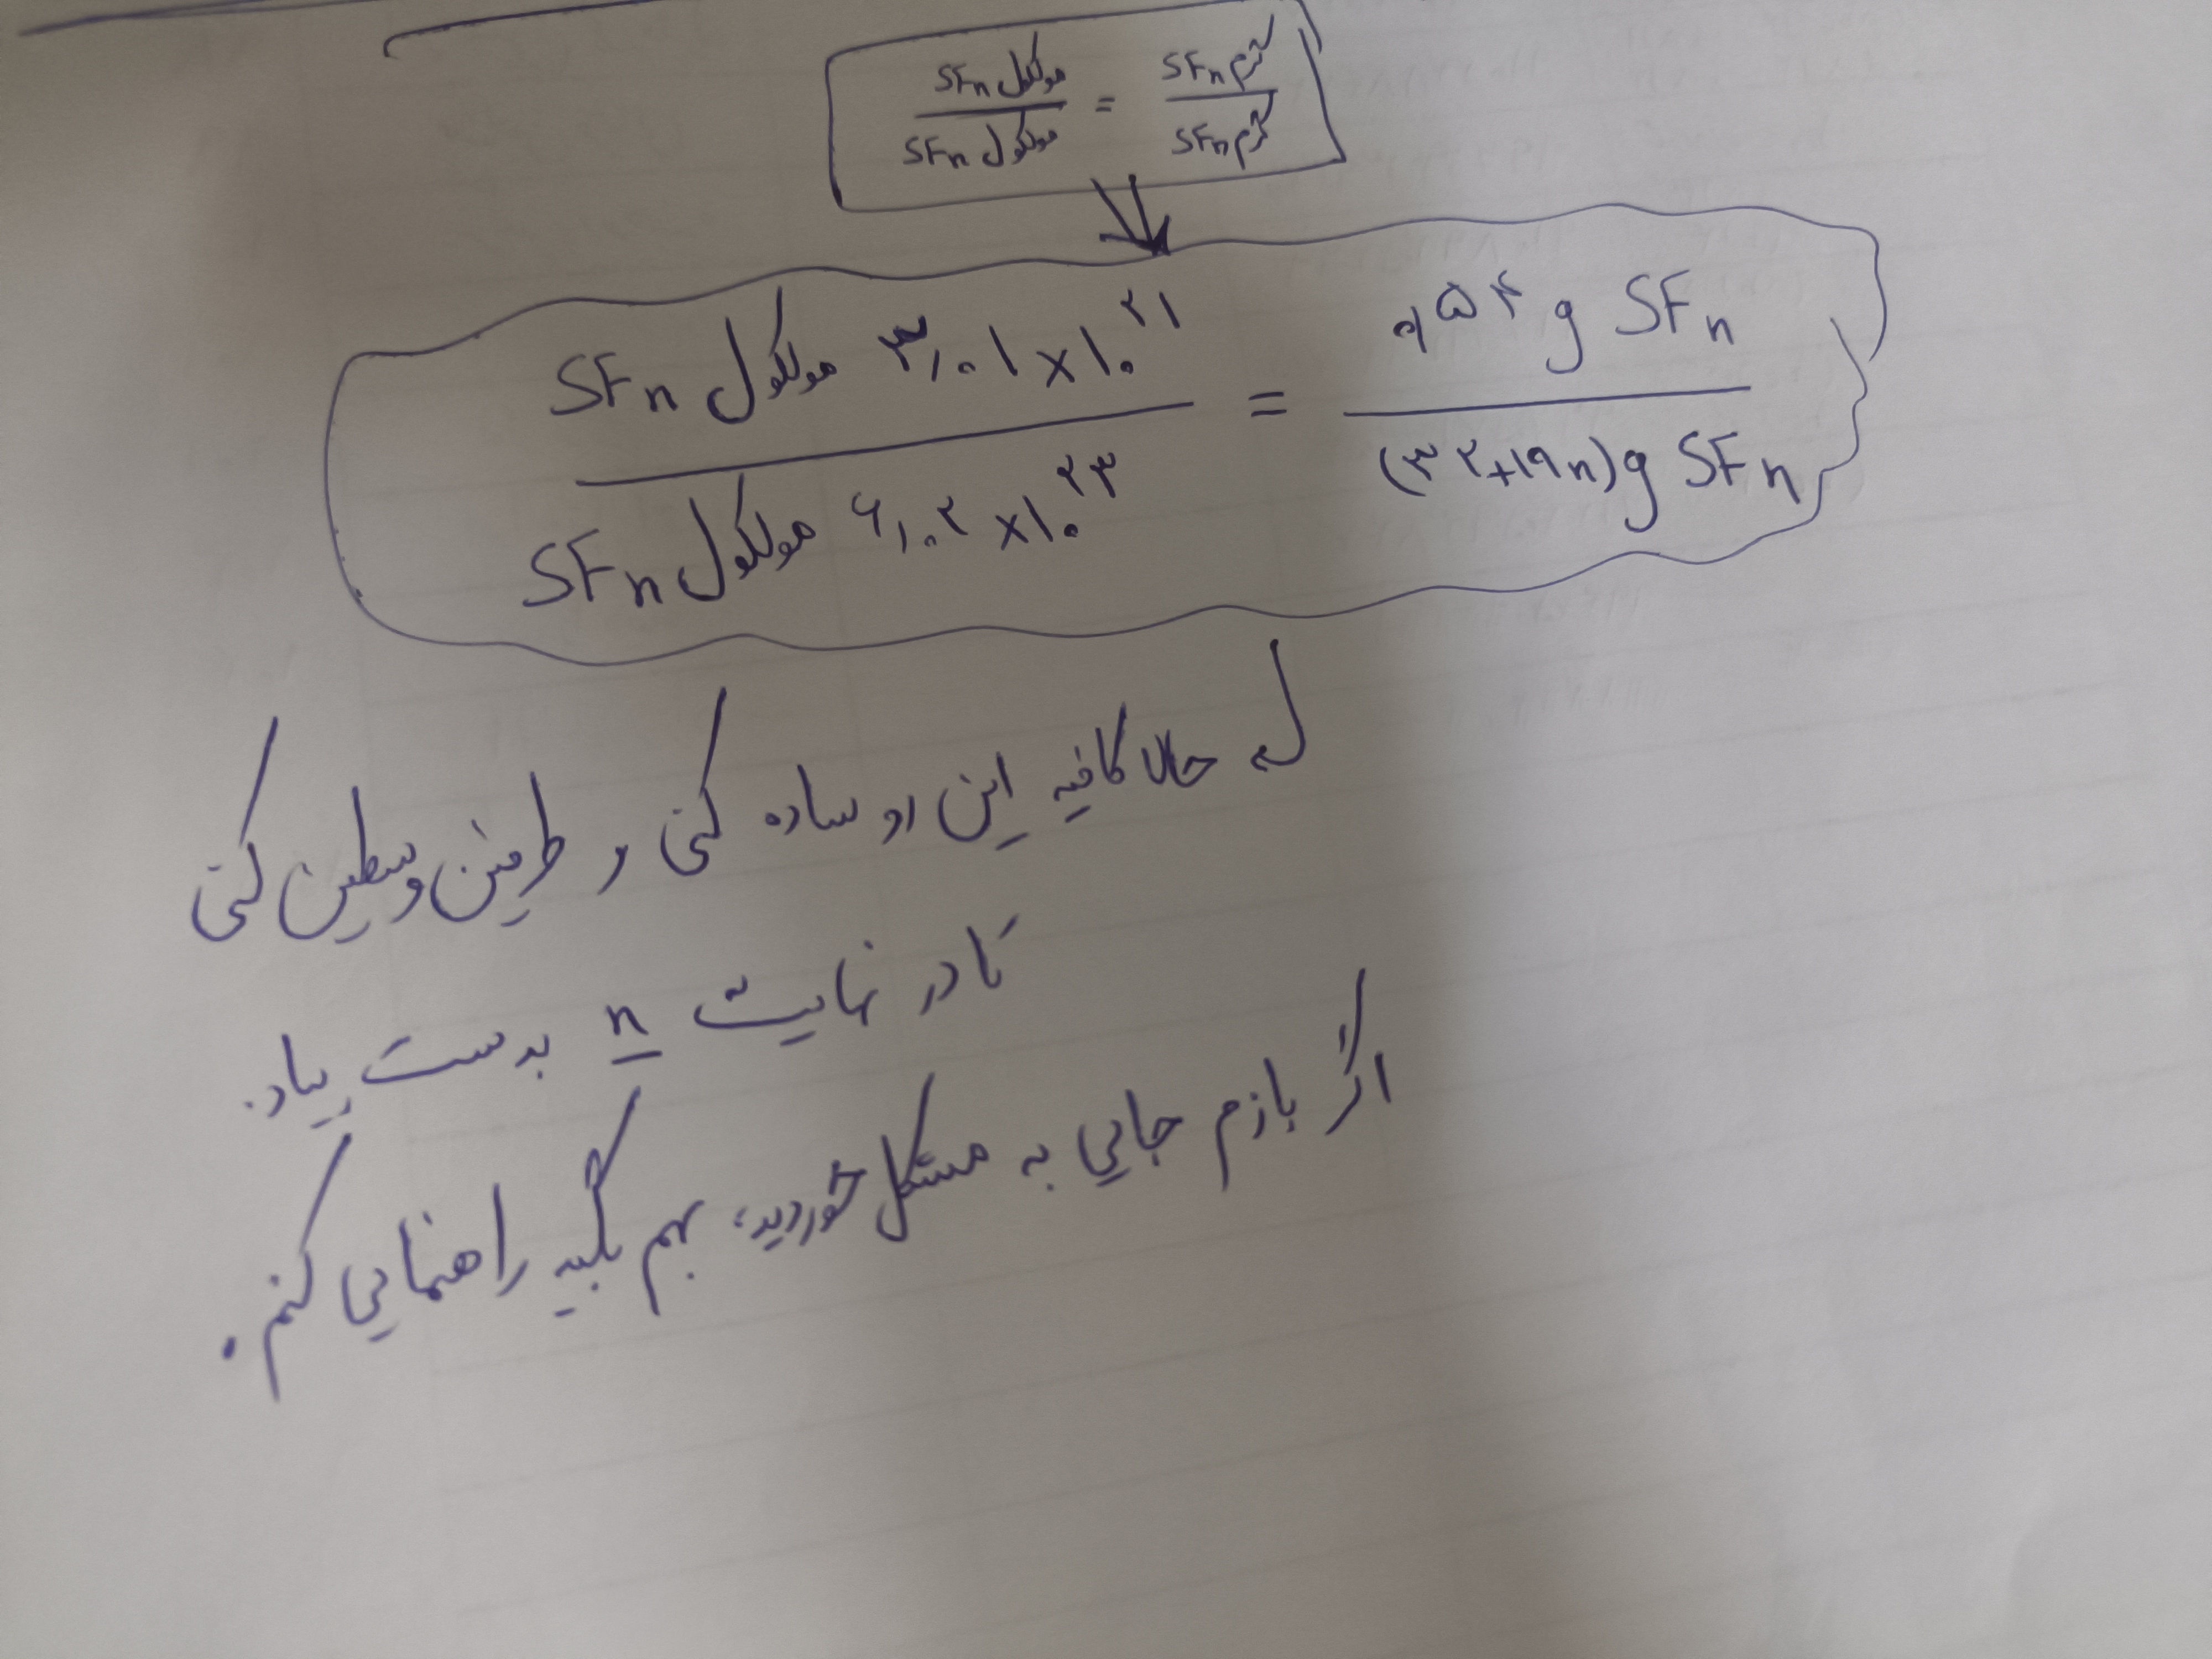 مولکول SFn / مولکول SFn = گرم SFn / گرم SFn
۳٫۰۱ × ۱۰^۲۱ مولکول SFn / ۶٫۰۲ × ۱۰^۲۳ مولکول SFn = ۰٫۵۴ g SFn / (۳۲+۱۹n) g SFn
حالا کافیه این رو ساده کنی و طرفین وسطین کنی
تا در نهایت n بدست بیاد.
اگر بازم جایی به مشکل خوردید، بهم بگید راهنمایی کنم.